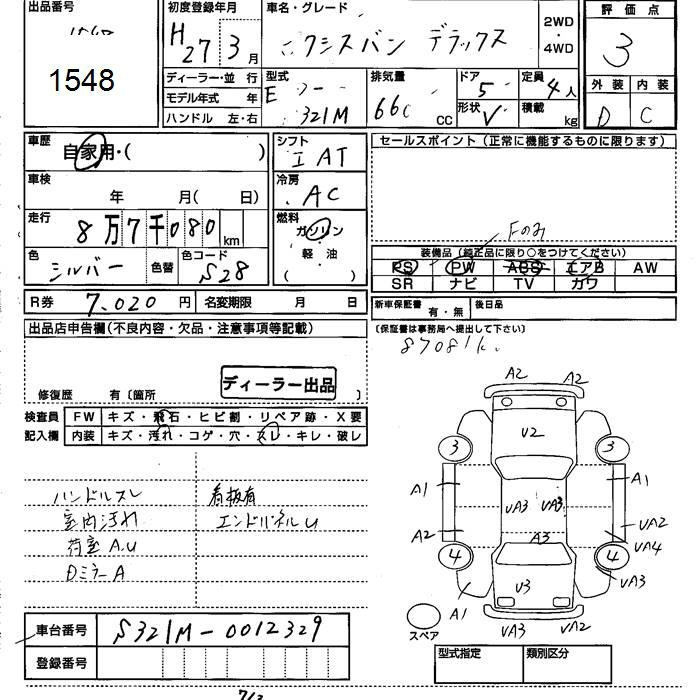 出品番号 初度登録年月 車名・グレード 2WD・4WD 評価点
1548 H27 3月 クシスバン デラックス 3
ディーラー・並行 型式 排気量 ドア 定員 外装 内装
モデル年式 年 E 321M 66 CC 5 4人 D C
ハンドル 左・右 形状 V 積載 kg
車歴 自家用・( ) シフト IAT セールスポイント (正常に機能するものに限ります)
車検 年 月(日) 冷房 AC
走行 8万7千080km 燃料 ガソリン・軽・油 ( ) Fのみ
色 シルバー 色替 色コード S28 装備品 (純正品に限り○をつけてください)
PS PW ABS エアB AW
SR ナビ TV カワ
R券 7,020円 名変期限 月 日 新車保証書 有・無 後日品
出品店申告欄(不良内容・欠品・注意事項等記載) (保証書は事務局へ提出して下さい)
87081k.
ディーラー出品
修復歴 有〔箇所 〕
検査員 FW キズ・飛石・ヒビ割・リペア跡・X要
記入欄 内装 キズ・汚れ・コゲ・穴・スレ・キレ・破レ
ハンドルスレ 看板有
室内汚れ エンドパネルU
荷室A.U
Dミラー A
A2 A2
U2
3 3
A1 A1
UA3 UA3
A2 A3 UA2
UA4
4 4
U3 UA3
A1
スペア UA3 UA2
車台番号 S321M-0012329
登録番号 型式指定 類別区分